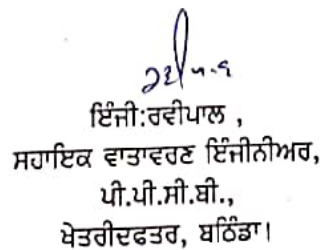 ਇੰਜੀ:ਰਵੀਪਾਲ ,
ਸਹਾਇਕ ਵਾਤਾਵਰਣ ਇੰਜੀਨੀਅਰ,
ਪੀ.ਪੀ.ਸੀ.ਬੀ.,
ਖੇਤਰੀਦਫਤਰ, ਬਠਿੰਡਾ।